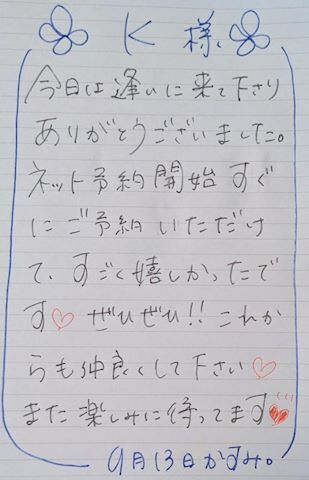 K 様
今日は逢いに来て下さり
ありがとうございました。
ネット予約開始すぐ
にご予約いただけ
て、すごく嬉しかったで
す♡ ぜひぜひ!! これか
らも仲良くして下さい♡
また楽しみに待ってます♥
9月13日かすみ。